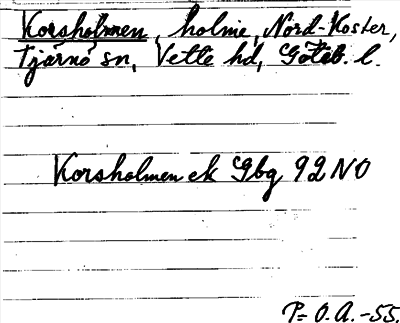 Korsholmen, holme, Nord-Koster,
Tjärnö sn, Vette hd, Göteb. l.
Korsholmen ek Gbg 92 NO
P= O.A. -55.